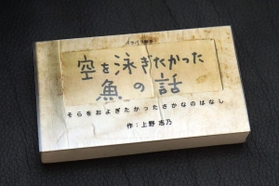 空を泳ぎたかった
魚の話
そらをおよぎたかったさかなのはなし
作：上野